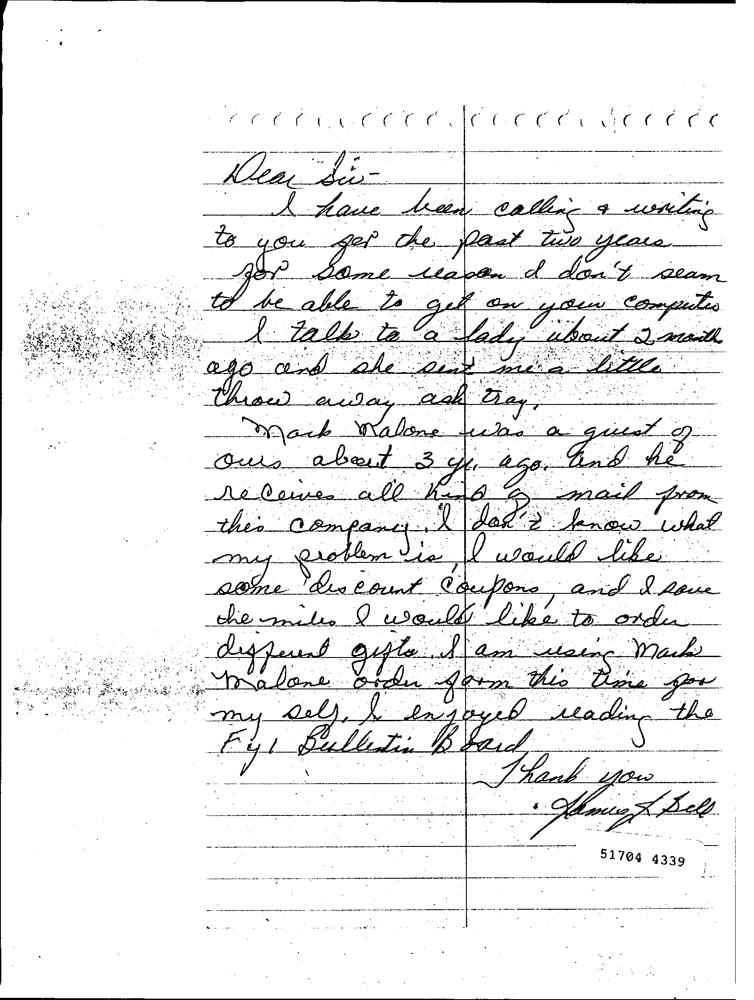 Dear Sir-
I have been calling & writing
to you for the past two years
for some reason I don't seam
to be able to get on your computer
I talk to a lady about 2 month
ago and she sent me a little
throw away ash tray.
Mark Malone was a guest of
ours about 3 yr. ago. And he
receives all kind of mail from
this company. I don't know what
my problem is, I would like
some discount coupons, and I save
the miles I would like to order
different gifts. I am using Mark
Malone order form this time for
my self. I enjoyed reading the
Fyi Bulletin Board
Thank you
James L Bell
51704 4339